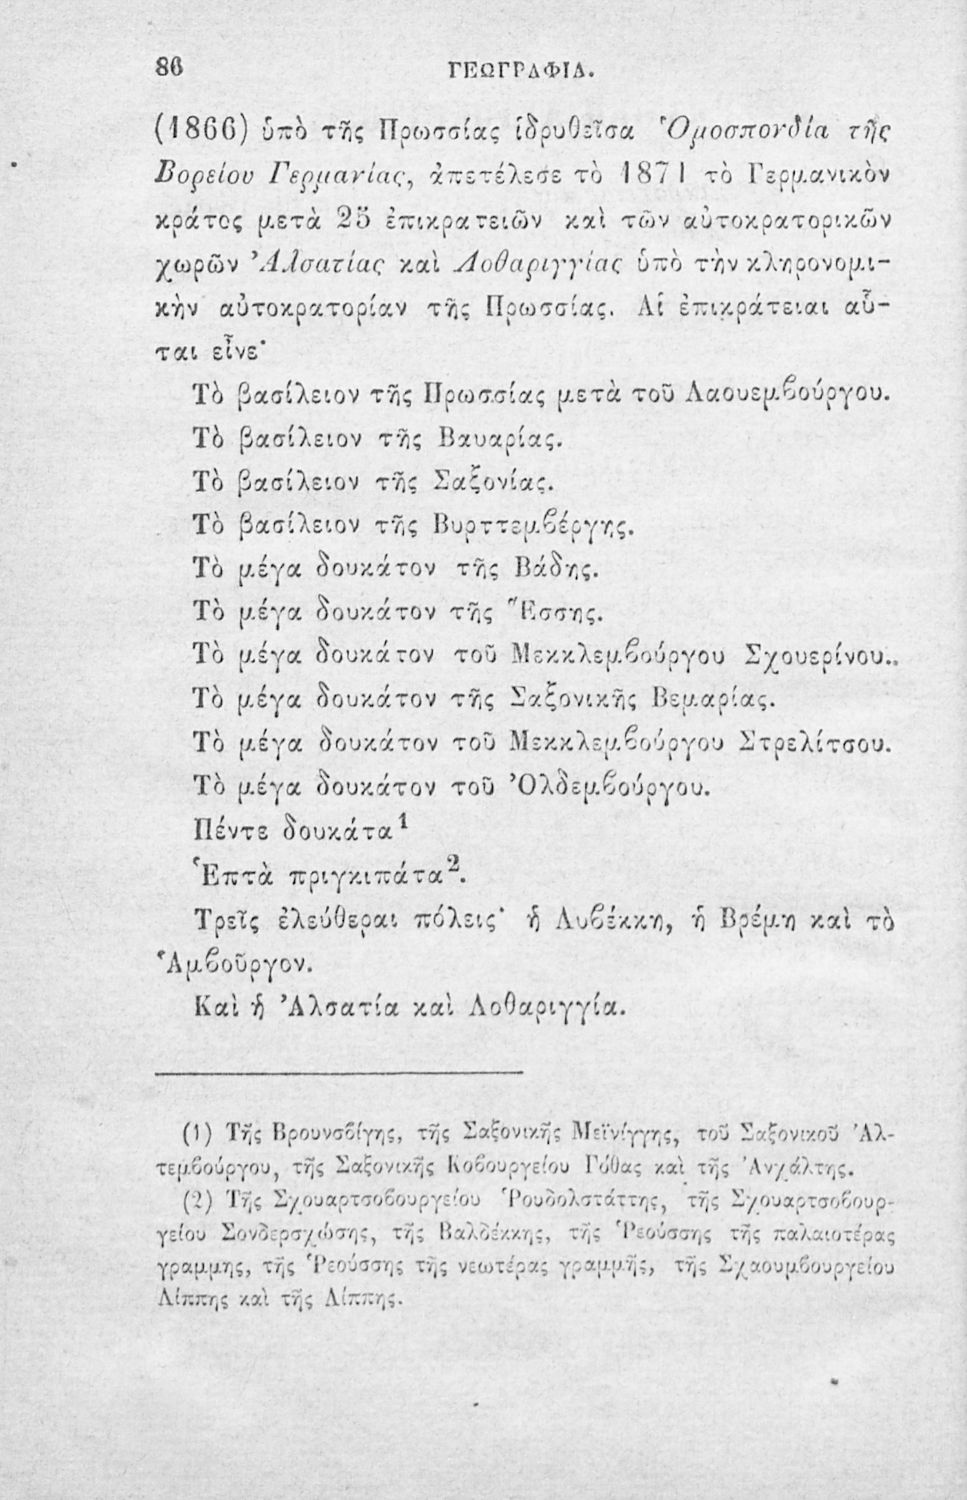 86
ΓΕΩΓΡΑΦΙΑ.
(1866) ὑπὸ τῆς Πρωσσίας ἱδρυθεῖσα Ὁμοσπονδία τῆς
Βορείου Γερμανίας, ἀπετέλεσε τὸ 1871 τὸ Γερμανικὸν
κράτος μετὰ 25 ἐπικρατειῶν καὶ τῶν αὐτοκρατορικῶν
χωρῶν Ἀλσατίας καὶ Λοθαριγγίας ὑπὸ τὴν κληρονομι-
κὴν αὐτοκρατορίαν τῆς Πρωσσίας. Αἱ ἐπικράτειαι αὗ-
ται εἶνε·
Τὸ βασίλειον τῆς Πρωσσίας μετὰ τοῦ Λαουεμβούργου.
Τὸ βασίλειον τῆς Βαυαρίας.
Τὸ βασίλειον τῆς Σαξονίας.
Τὸ βασίλειον τῆς Βυρττεμβέργης.
Τὸ μέγα δουκάτον τῆς Βάδης.
Τὸ μέγα δουκάτον τῆς Ἕσσης.
Τὸ μέγα δουκάτον τοῦ Μεκκλεμβούργου Σχουερίνου.
Τὸ μέγα δουκάτον τῆς Σαξονικῆς Βεμαρίας.
Τὸ μέγα δουκάτον τοῦ Μεκκλεμβούργου Στρελίτσου.
Τὸ μέγα δουκάτον τοῦ Ὀλδεμβούργου.
Πέντε δουκάτα¹
Ἑπτὰ πριγκιπάτα².
Τρεῖς ἐλεύθεραι πόλεις· ἡ Λυβέκκη, ἡ Βρέμη καὶ τὸ
Ἁμβοῦργον.
Καὶ ἡ Ἀλσατία καὶ Λοθαριγγία.
(1) Τῆς Βρουνσβίγης, τῆς Σαξονικῆς Μεϊνίγγης, τοῦ Σαξονικοῦ Ἀλ-
τεμβούργου, τῆς Σαξονικῆς Κοβουργείου Γόθας καὶ τῆς Ἀνχάλτης.
(2) Τῆς Σχουαρτσοβουργείου Ῥουδολστάττης, τῆς Σχουαρτσοβουρ-
γείου Σονδερσχώσης, τῆς Βαλδέκκης, τῆς Ῥεούσσης τῆς παλαιοτέρας
γραμμης, τῆς Ῥεούσσης τῆς νεωτέρας γραμμῆς, τῆς Σχαουμβουργείου
Λίππης καὶ τῆς Λίππης.